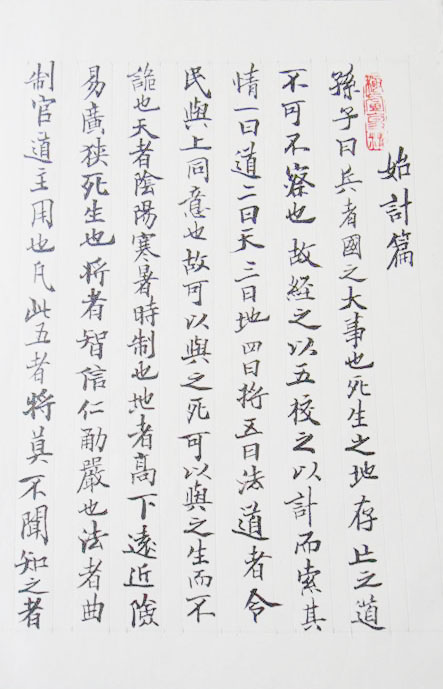 始計篇
孫子曰兵者國之大事也死生之地存亡之道
不可不察也故經之以五校之以計而索其
情一曰道二曰天三曰地四曰將五曰法道者令
民與上同意也故可以與之死可以與之生而不
詭也天者陰陽寒暑時制也地者高下遠近險
易廣狹死生也將者智信仁勇嚴也法者曲
制官道主用也凡此五者將莫不聞知之者